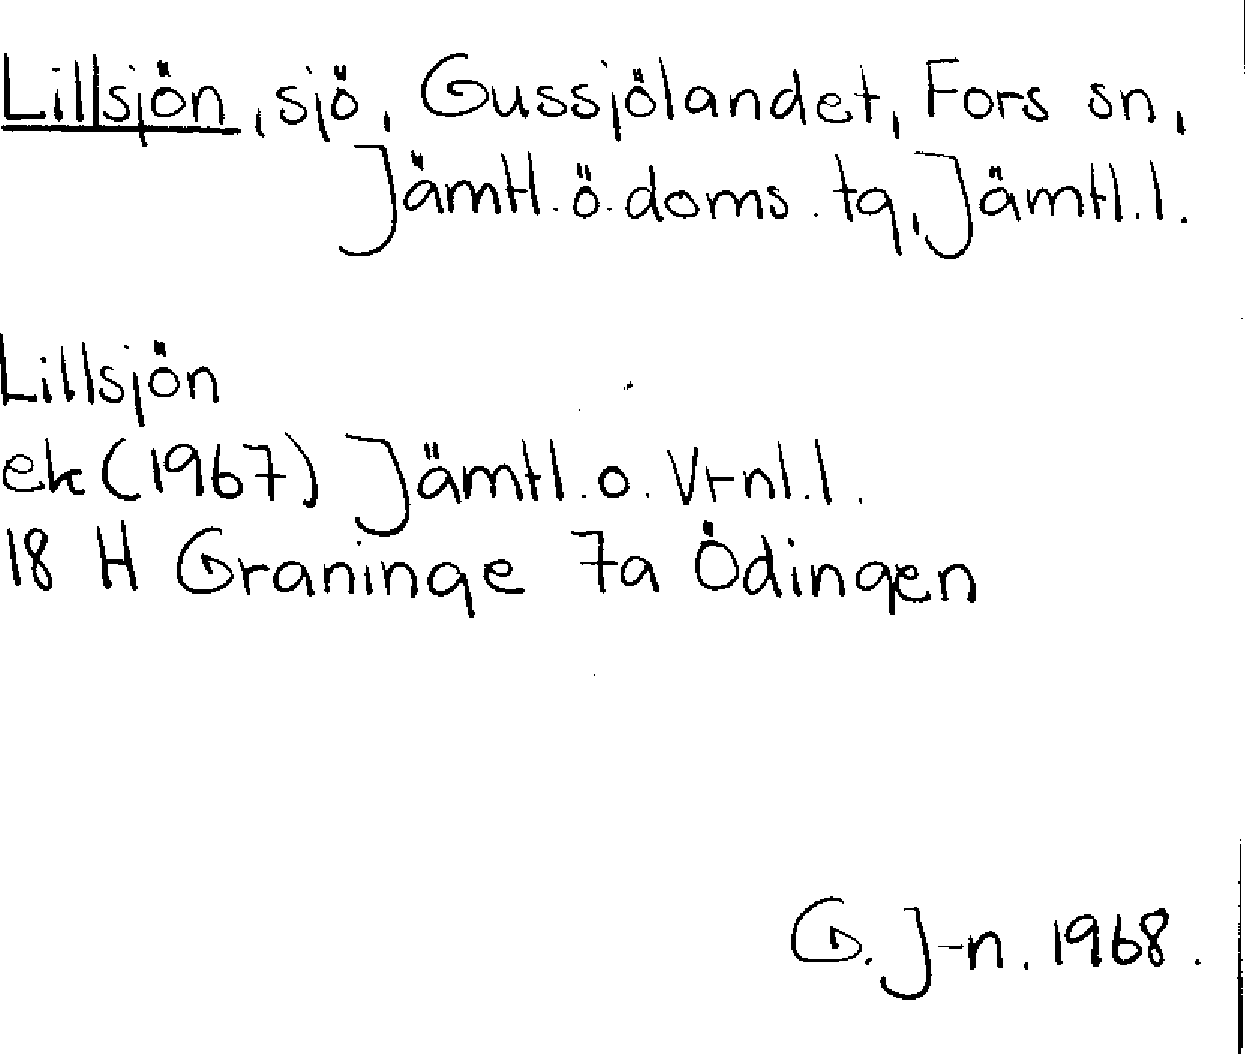 Lillsjön, sjö, Gussjölandet, Fors sn,
Jämtl. ö. doms. tg, Jämtl. l.
Lillsjön
ek (1967) Jämtl. o. Vrnl. l.
18 H Graninge 7a Ödingen
G. J-n. 1968.